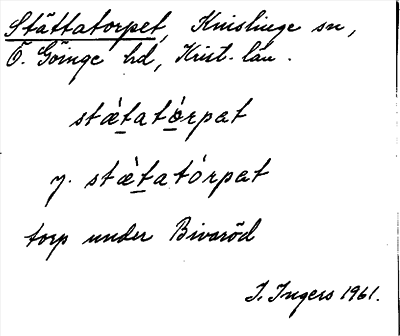 Stättatorpet, Knislinge sn,
Ö. Göinge hd, Krist. län.
stǽtatórpat
y. stǽtatórpat
torp under Bivaröd
I. Ingers 1961.